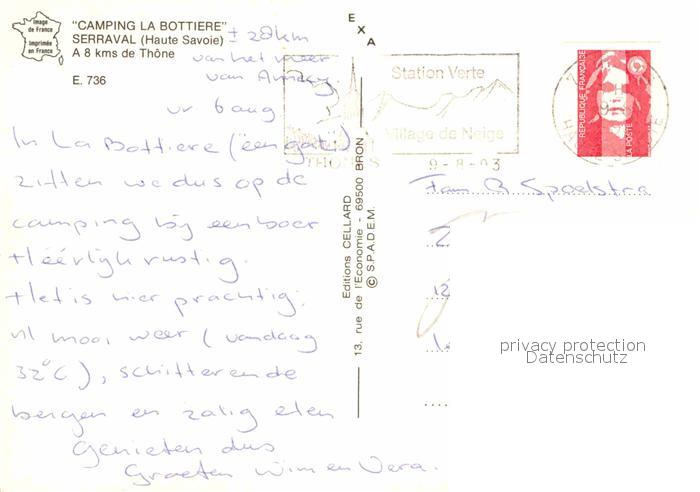 Image
de France
Imprimée
en France
"CAMPING LA BOTTIERE"
SERRAVAL (Haute Savoie)
A 8 kms de Thône
E. 736
± 20km
van het meer
van Annecy.
vr 6 aug
In La Bottiere (een gat!)
zitten we dus op de
camping bij een boer
Heérlijk rustig.
Het is hier prachtig:
nl mooi weer (vandaag
32°C), schitterende
bergen en zalig eten
Genieten dus
Groeten Wim en Vera.
EXA
Editions CELLARD
13, rue de l'Economie - 69500 BRON
© S.P.A.D.E.M.
Station Verte
Village de Neige
9-8-93
REPUBLIQUE FRANÇAISE
LA POSTE
Fam Spoelstra
privacy protection
Datenschutz